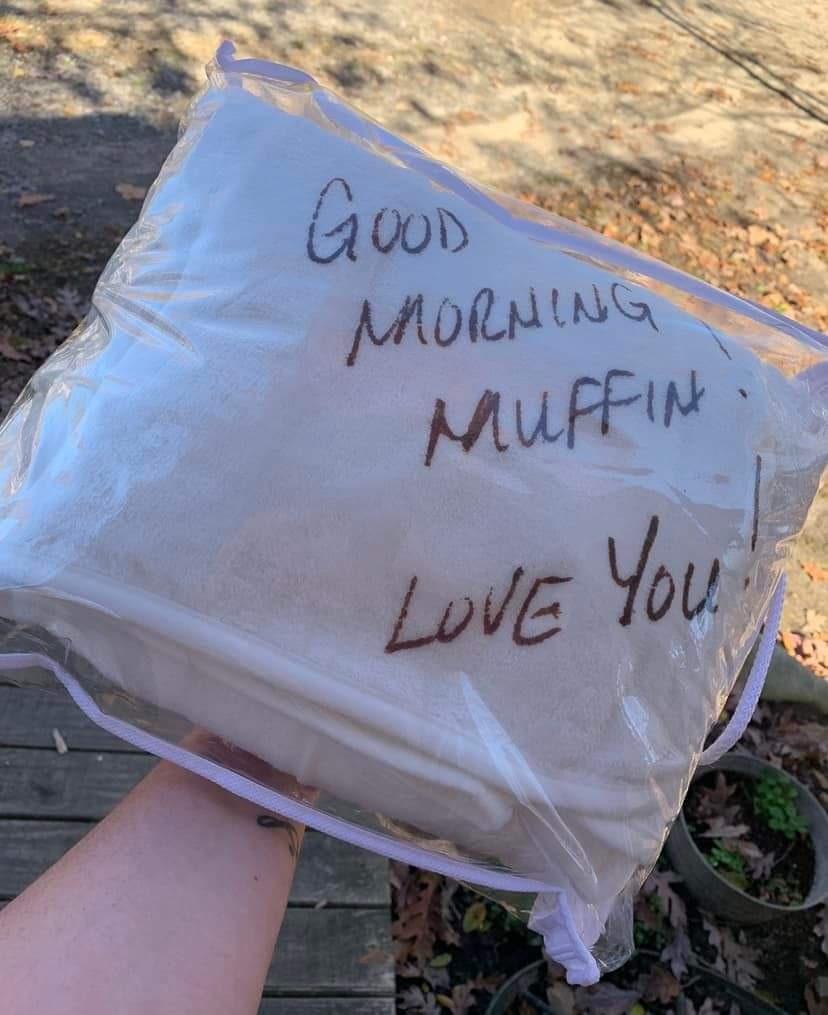 GOOD
MORNING
MUFFIN!
LOVE YOU!